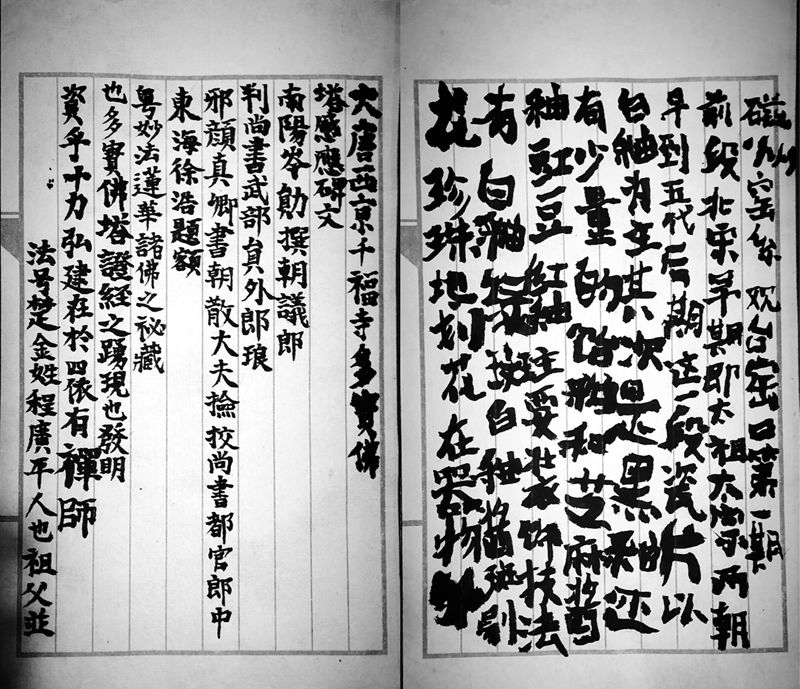 磁州窑系观台窑口第一期
前段北宋早期即太祖太宗两朝
早到五代后期这一段瓷片以
白釉为主其次是黑釉还
有少量的饴釉和芝麻酱
釉豇豆红釉主要装饰技法
有白釉斑白釉酱斑剔
花珍珠地划花在器物
大唐西京千福寺多寶佛
塔感應碑文
南陽岑勛撰朝議郎
判尚書武部員外郎琅
邪顏真卿書朝散大夫撿挍尚書都官郎中
東海徐浩題額
粤妙法蓮華諸佛之祕藏
也多寶佛塔證經之踴現也發明
資乎十力弘建在於四依有禪師
法号楚金姓程廣平人也祖父並